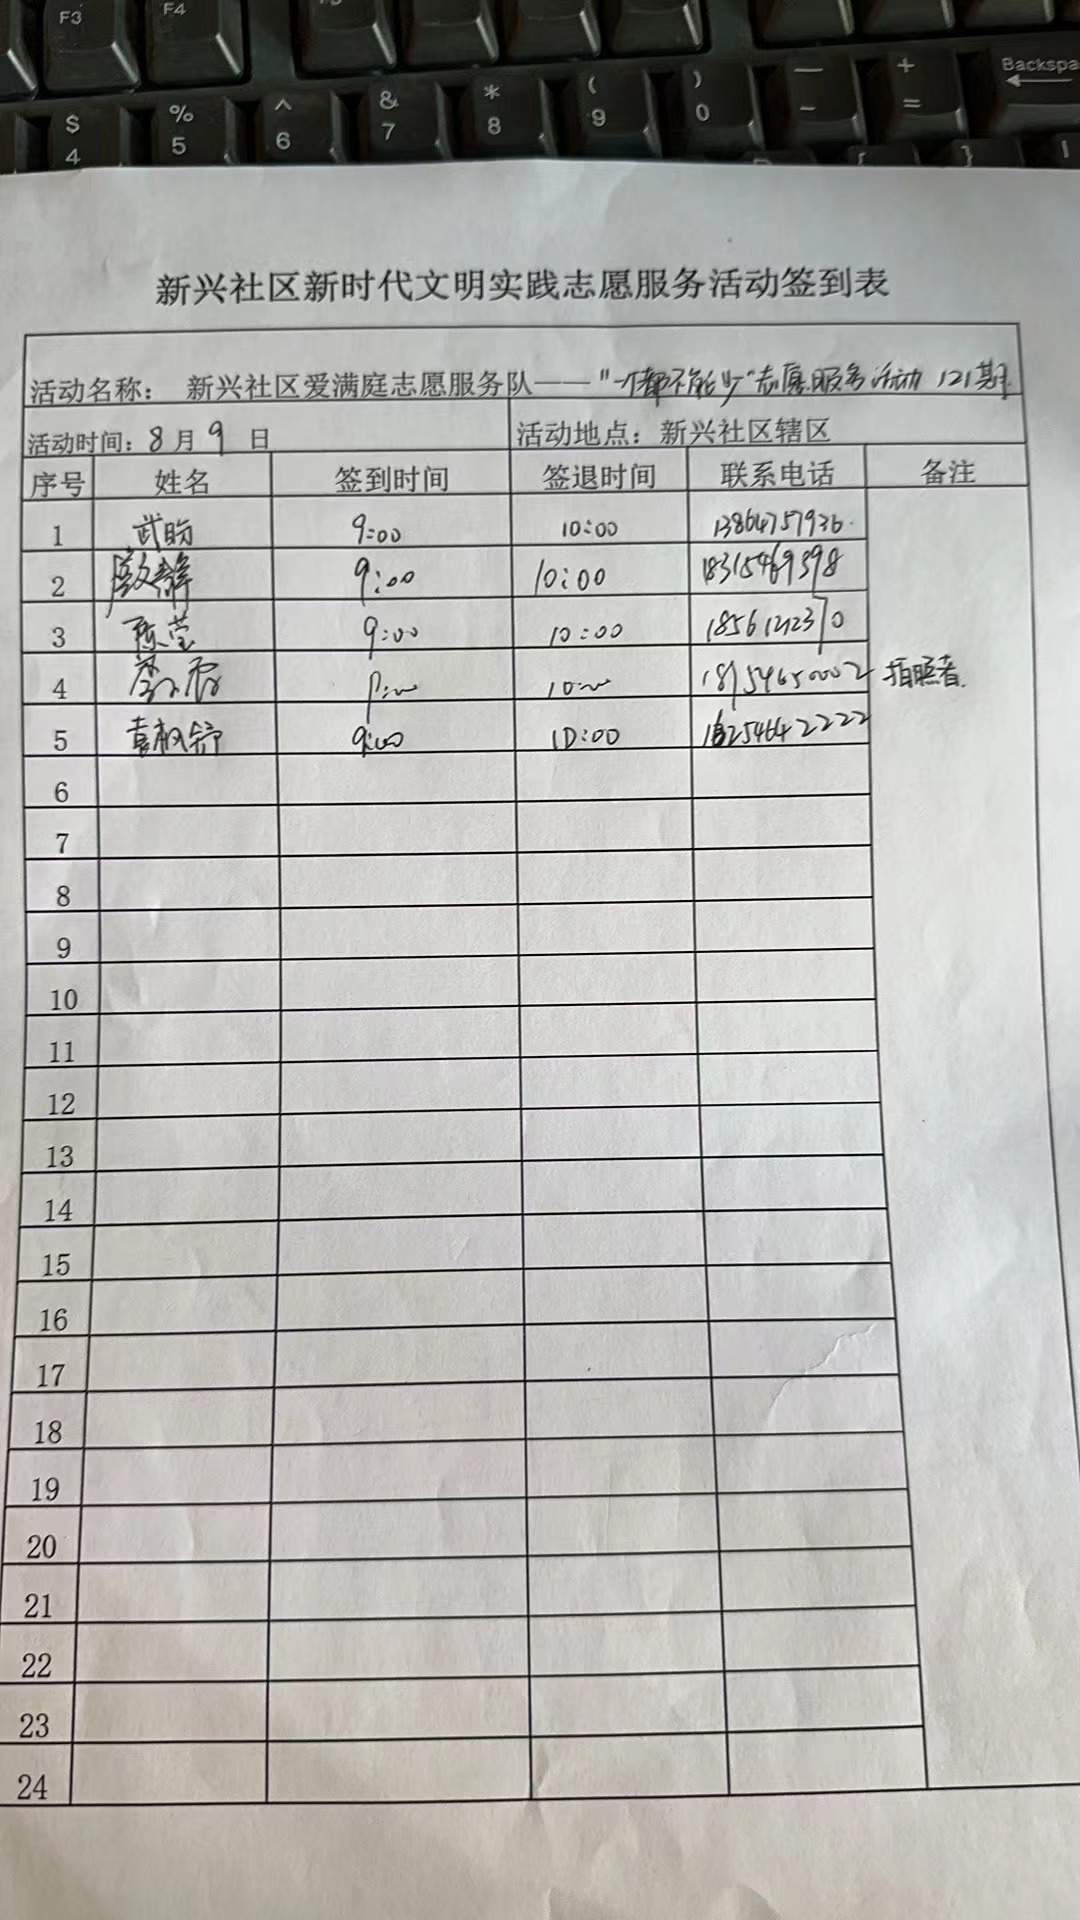 F3
F4
$ 4
% 5
^ 6
& 7
* 8
( 9
) 0
— -
+ =
Backspa
新兴社区新时代文明实践志愿服务活动签到表
活动名称： 新兴社区爱满庭志愿服务队——"一个都不能少"志愿服务活动 121期
活动时间：8月9日 活动地点：新兴社区辖区
序号 姓名 签到时间 签退时间 联系电话 备注
1 武盼 9:00 10:00 13864757936
2 9:00 10:00 18315469398
3 陈莹 9:00 10:00
4 10:00 18954650002 拍照者
5 袁枫舒 9:00 10:00
6
7
8
9
10
11
12
13
14
15
16
17
18
19
20
21
22
23
24